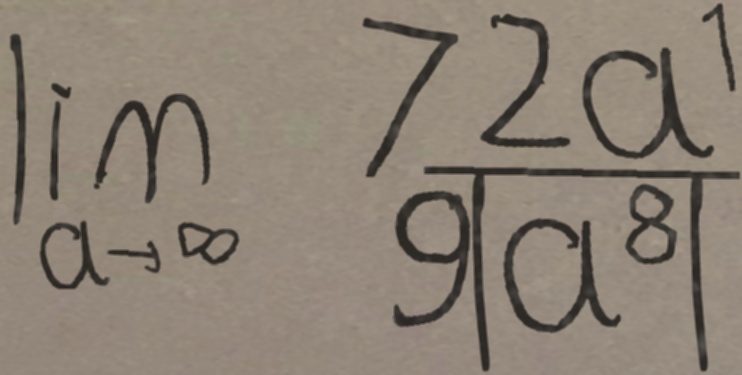 lim 72a^1
a→∞ 9|a^8|